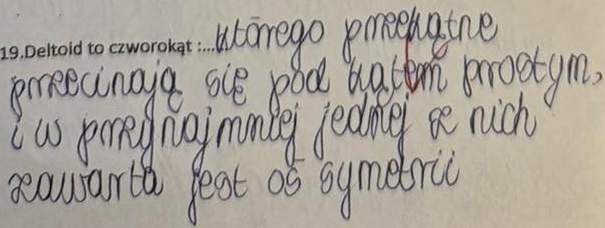 19.Deltoid to czworokąt :...którego przekątne
przecinają się pod kątem prostym,
i w przynajmniej jednej z nich
zawarta jest oś symetrii